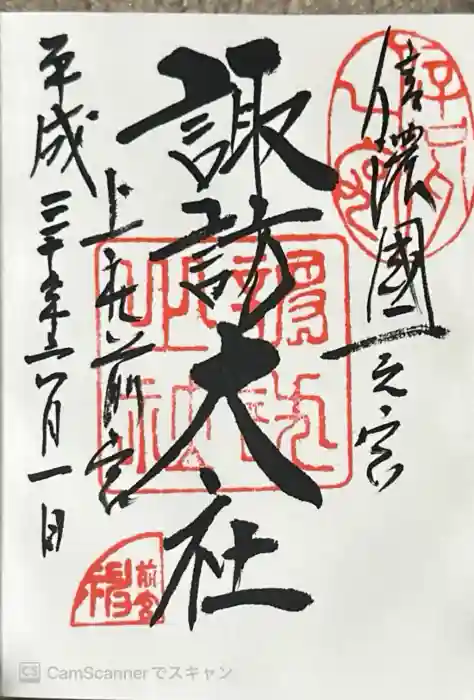 信濃國一之宮
諏訪大社
上社前宮
平成三十年六月一日
前宮
CamScannerでスキャン